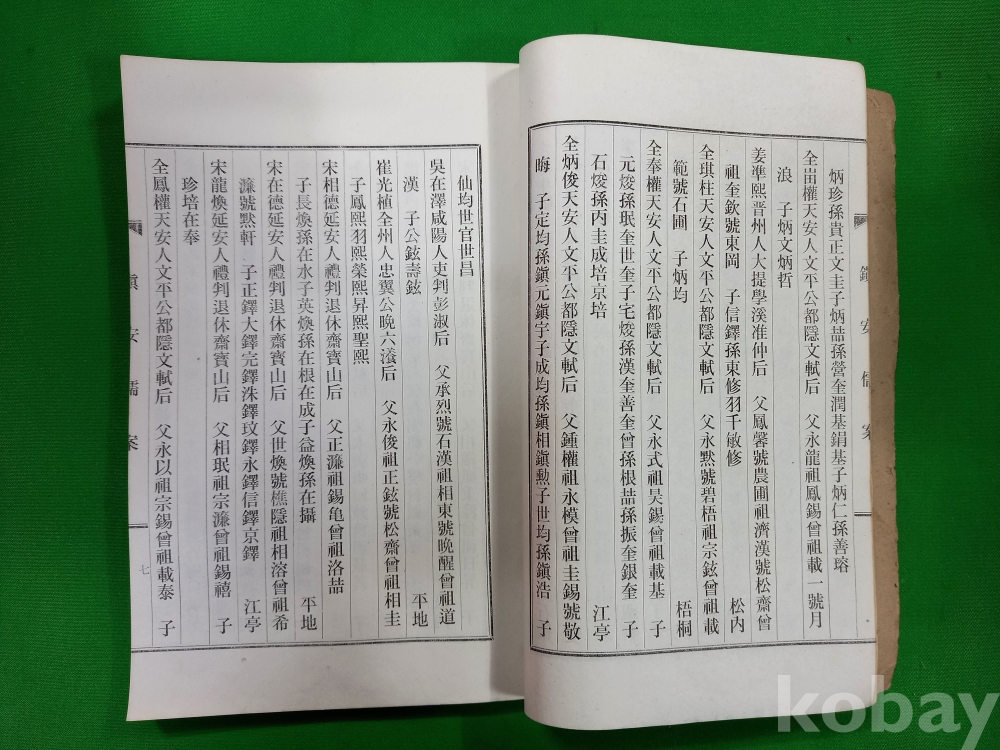 炳珍孫貴正文圭子炳喆孫營奎潤基鋗基子炳仁孫善瑢
全出權天安人文平公都隱文軾后 父永龍祖鳳錫曾祖載一號月
浪 子炳文炳哲
姜準熙晋州人大提學溪准仲后 父鳳馨號農圃祖濟漢號松齋曾
祖奎欽號東岡 子信鐸孫東修羽千敏修 松內
全琪柱天安人文平公都隱文軾后 父永黙號碧梧祖宗鉉曾祖載
範號石圃 子炳均 梧桐
全奉權天安人文平公都隱文軾后 父永式祖昊錫曾祖載基 子
元焌孫珉奎世奎子宅焌孫漢奎善奎曾孫根喆孫振奎銀奎 子
石焌孫丙圭成培京培 江亭
全炳俊天安人文平公都隱文軾后 父鍾權祖永模曾祖圭錫號敬
晦 子定均孫鎭元鎭宇子成均孫鎭相鎭勲子世均孫鎭浩 子
鎭安儒案
仙均世官世昌
吳在澤咸陽人吏判彭淑后 父承烈號石漢祖相東號晩醒曾祖道
漢 子公鉉壽鉉 平地
崔光植全州人忠翼公晩六瀁后 父永俊祖正鉉號松齋曾祖相圭
子鳳熙羽熙榮熙昇熙聖熙
宋相德延安人禮判退休齋寶山后 父正濂祖錫亀曾祖洛喆
子長煥孫在水子英煥孫在根在成子益煥孫在攝 平地
宋在德延安人禮判退休齋寶山后 父世煥號樵隱祖相溶曾祖希
濂號黙軒 子正鐸大鐸完鐸洙鐸玟鐸永鐸信鐸京鐸 江亭
宋龍煥延安人禮判退休齋寶山后 父相珉祖宗濂曾祖錫禧 子
珍培在奉
全鳳權天安人文平公都隱文軾后 父永以祖宗錫曾祖載泰 子
鎭安儒案 七
kobay